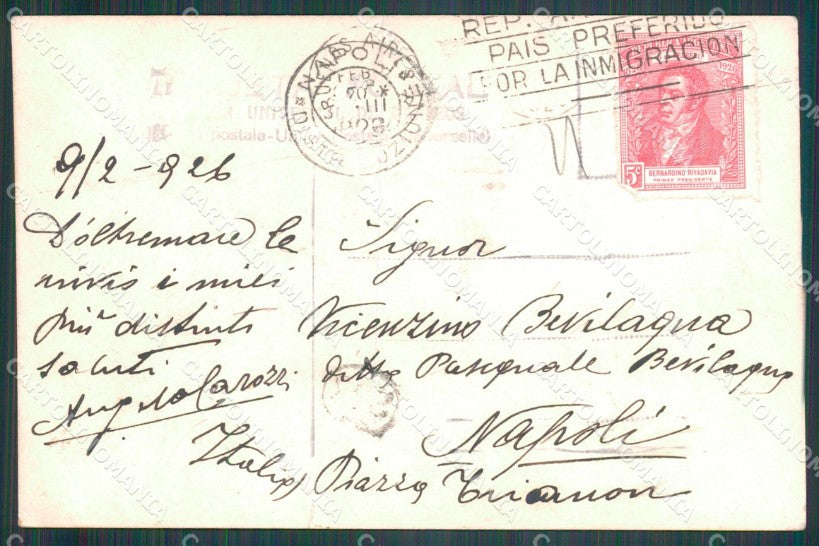 REP. A
PAIS PREFERIDO
POR LA INMIGRACION
BUENOS AIRES
NAPOLI
FEB
20
BERNARDINO RIVADAVIA
PRIMER PRESIDENTE
5c
postale-Un
9/2-926
D'oltremare le
invio i miei
più distinti
saluti
Angelo Carozzi
Signor
Vicenzino Bevilaqua
ditta Pasquale Bevilaqua
Napoli
Italia Piazza Trianon
CARTOLINOMANIA